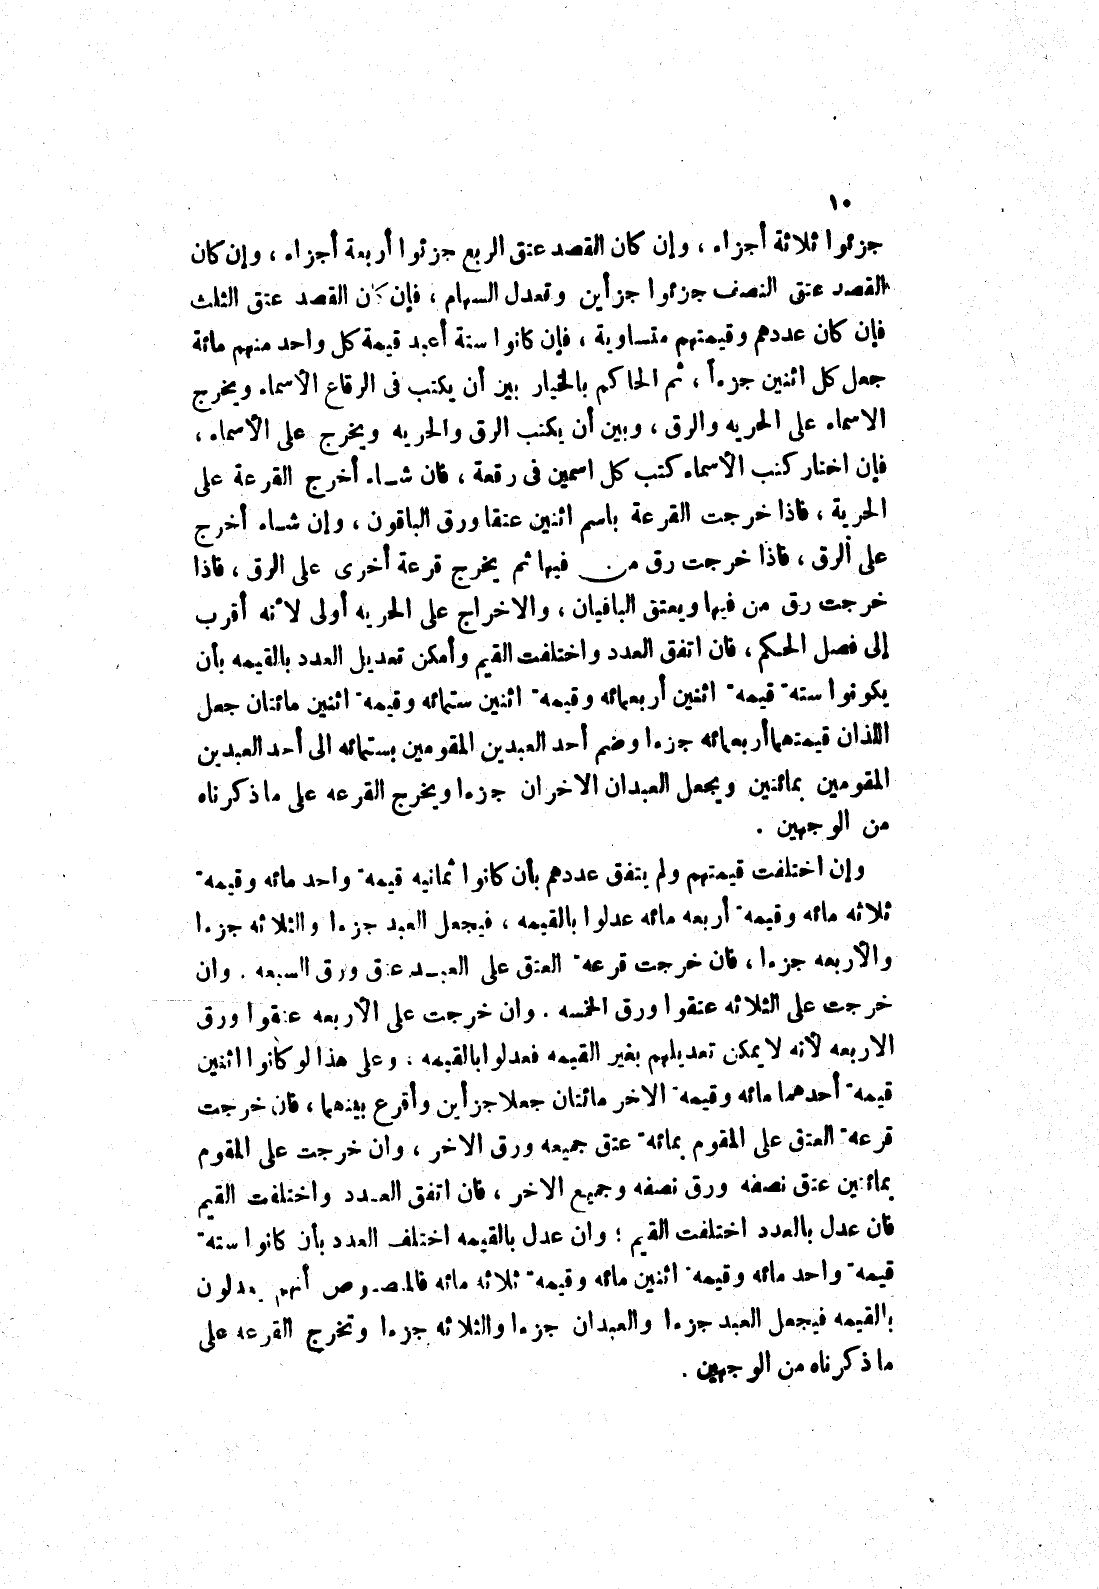 ١٠
جزئوا ثلاثة أجزاء ، وإن كان القصد عتق الربع جزئوا أربعة أجزاء ، وإن كان
القصد عتق النصف جزئوا جزأين وتعدل السهام ، فإن كان القصد عتق الثلث
فإن كان عددهم وقيمتهم متساوية ، فإن كانوا ستة أعبد قيمة كل واحد منهم مائة
جعل كل اثنين جزءاً ، ثم الحاكم بالخيار بين أن يكتب فى الرقاع الأسماء ويخرج
الاسماء على الحريه والرق ، وبين أن يكتب الرق والحريه ويخرج على الأسماء ،
فإن اختار كتب الأسماء كتب كل اسمين فى رقعة ، فان شاء أخرج القرعة على
الحرية ، فاذا خرجت القرعة باسم اثنين عتقا ورق الباقون ، وإن شاء أخرج
على الرق ، فاذا خرجت رق من فيها ثم يخرج قرعة أخرى على الرق ، فاذا
خرجت رق من فيها ويعتق الباقيان ، والاخراج على الحريه أولى لأنه أقرب
إلى فصل الحكم ، فان اتفق العدد واختلفت القيم وأمكن تعديل العدد بالقيمه بأن
يكونوا سته قيمه اثنين أربعمائه وقيمه اثنين ستمائه وقيمه اثنين مائتان جعل
اللذان قيمتهما أربعمائه جزءا وضم أحد العبدين المقومين بستمائه الى أحد العبدين
المقومين بمائتين ويجعل العبدان الاخران جزءا ويخرج القرعه على ما ذكرناه
من الوجهين .
وإن اختلفت قيمتهم ولم يتفق عددهم بأن كانوا ثمانيه قيمه واحد مائه وقيمه
ثلاثه مائه وقيمه أربعه مائه عدلوا بالقيمه ، فيجعل العبد جزءا والثلاثه جزءا
والأربعه جزءا ، فان خرجت قرعه العتق على العبد عتق ورق السبعه . وان
خرجت على الثلاثه عتقوا ورق الخمسه . وان خرجت على الأربعه عتقوا ورق
الاربعه لأنه لا يمكن تعديلهم بغير القيمه فعدلوا بالقيمه ، وعلى هذا لو كانوا اثنين
قيمه أحدهما مائه وقيمه الاخر مائتان جعلا جزأين وأقرع بينهما ، فان خرجت
قرعه العتق على المقوم بمائه عتق جميعه ورق الاخر ، وان خرجت على المقوم
بمائتين عتق نصفه ورق نصفه وجميع الاخر ، فان اتفق العدد واختلفت القيم
فان عدل بالعدد اختلفت القيم ؛ وان عدل بالقيمه اختلف العدد بأن كانوا سته
قيمه واحد مائه وقيمه اثنين مائه وقيمه ثلاثه مائه فالمنصوص أنهم يعدلون
بالقيمه فيجعل العبد جزءا والعبدان جزءا والثلاثه جزءا وتخرج القرعه على
ما ذكرناه من الوجهين .